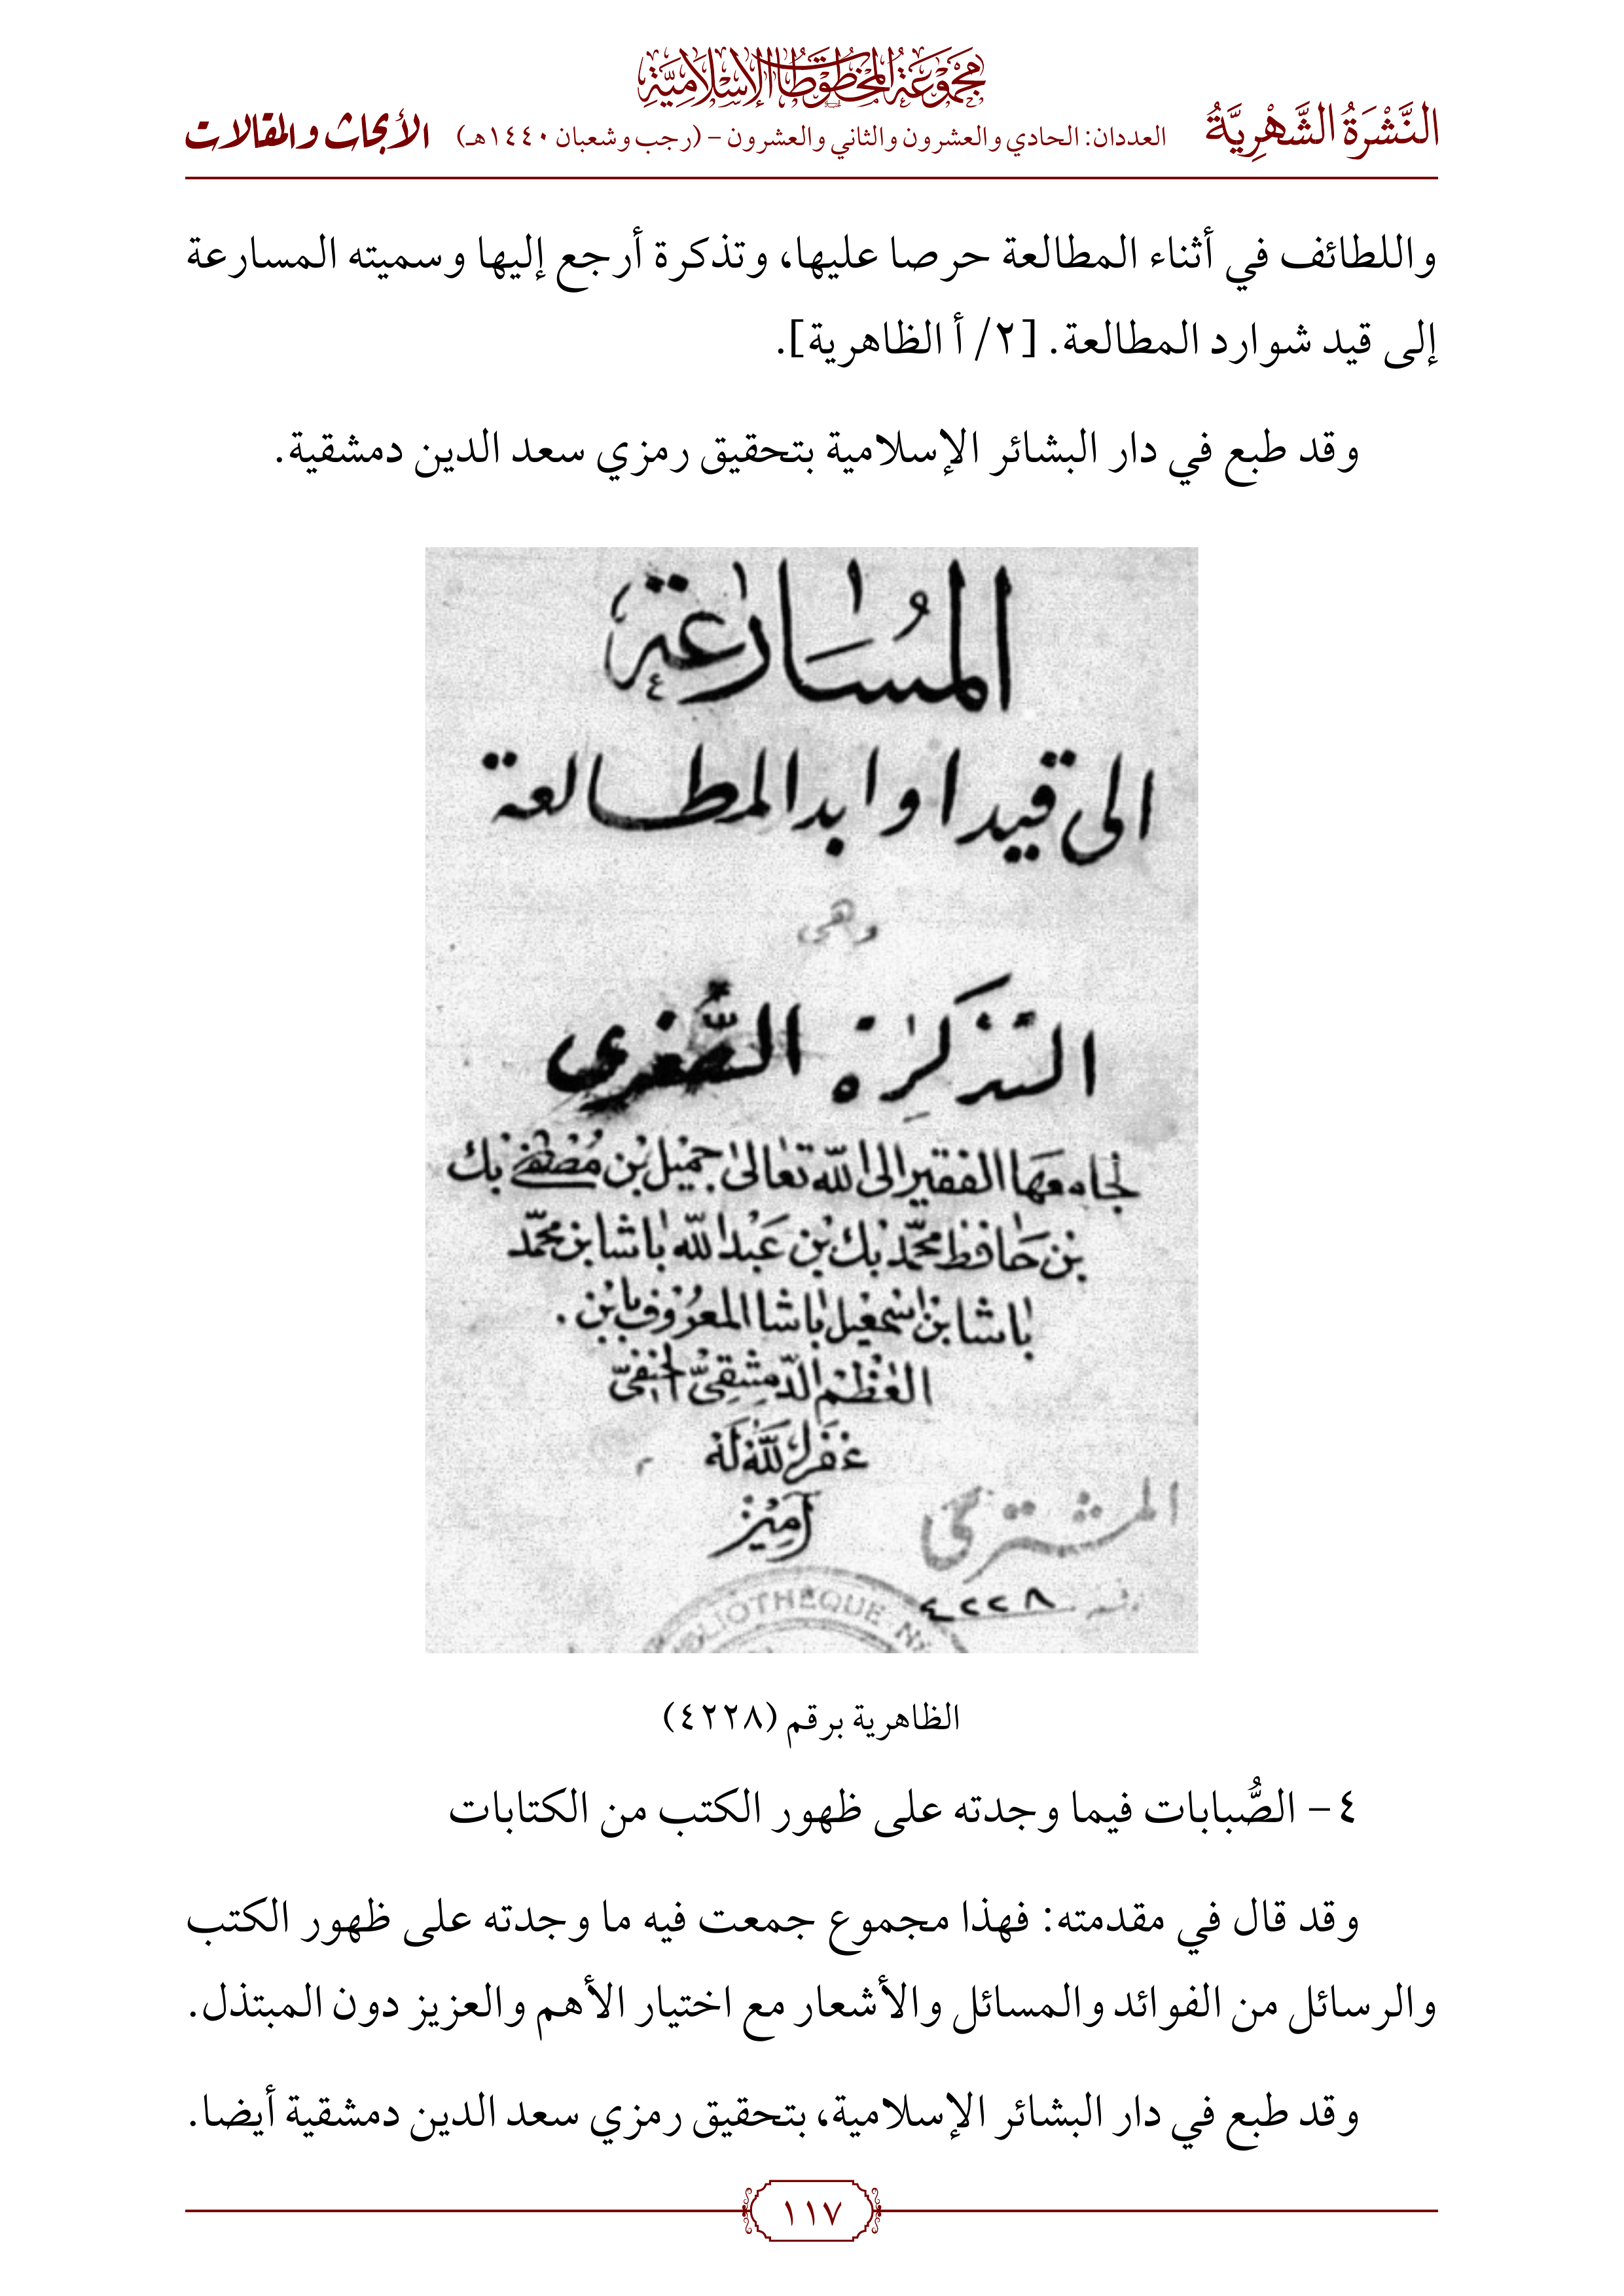 مجموعة المخطوطات الإسلامية
النَّشْرَةُ الشَّهْرِيَّةُ العددان: الحادي والعشرون والثاني والعشرون – (رجب وشعبان ١٤٤٠هـ) الأبحاث والمقالات
واللطائف في أثناء المطالعة حرصا عليها، وتذكرة أرجع إليها وسميته المسارعة
إلى قيد شوارد المطالعة. [٢/ أ الظاهرية].
وقد طبع في دار البشائر الإسلامية بتحقيق رمزي سعد الدين دمشقية.
المُسَارعة
الى قيد اوابد المطالعة
وهي
التذكرِة الصُّغرى
لجامعهَا الفقير الى الله تعالى جميل بن مُصْطفى بك
بن حَافظ محمّد بك بن عَبْد الله باشا بن محمّد
باشا بن اسْمعيل باشا المعرُوف بابن .
العَظْم الدّمشقِيّ الحنفيّ
غفَر اللّه لَهُ
آمِيْن
المشتركى
رقم ٤٢٢٨
BIBLIOTHEQUE
الظاهرية برقم (٤٢٢٨)
٤– الصُّبابات فيما وجدته على ظهور الكتب من الكتابات
وقد قال في مقدمته: فهذا مجموع جمعت فيه ما وجدته على ظهور الكتب
والرسائل من الفوائد والمسائل والأشعار مع اختيار الأهم والعزيز دون المبتذل.
وقد طبع في دار البشائر الإسلامية، بتحقيق رمزي سعد الدين دمشقية أيضا.
١١٧